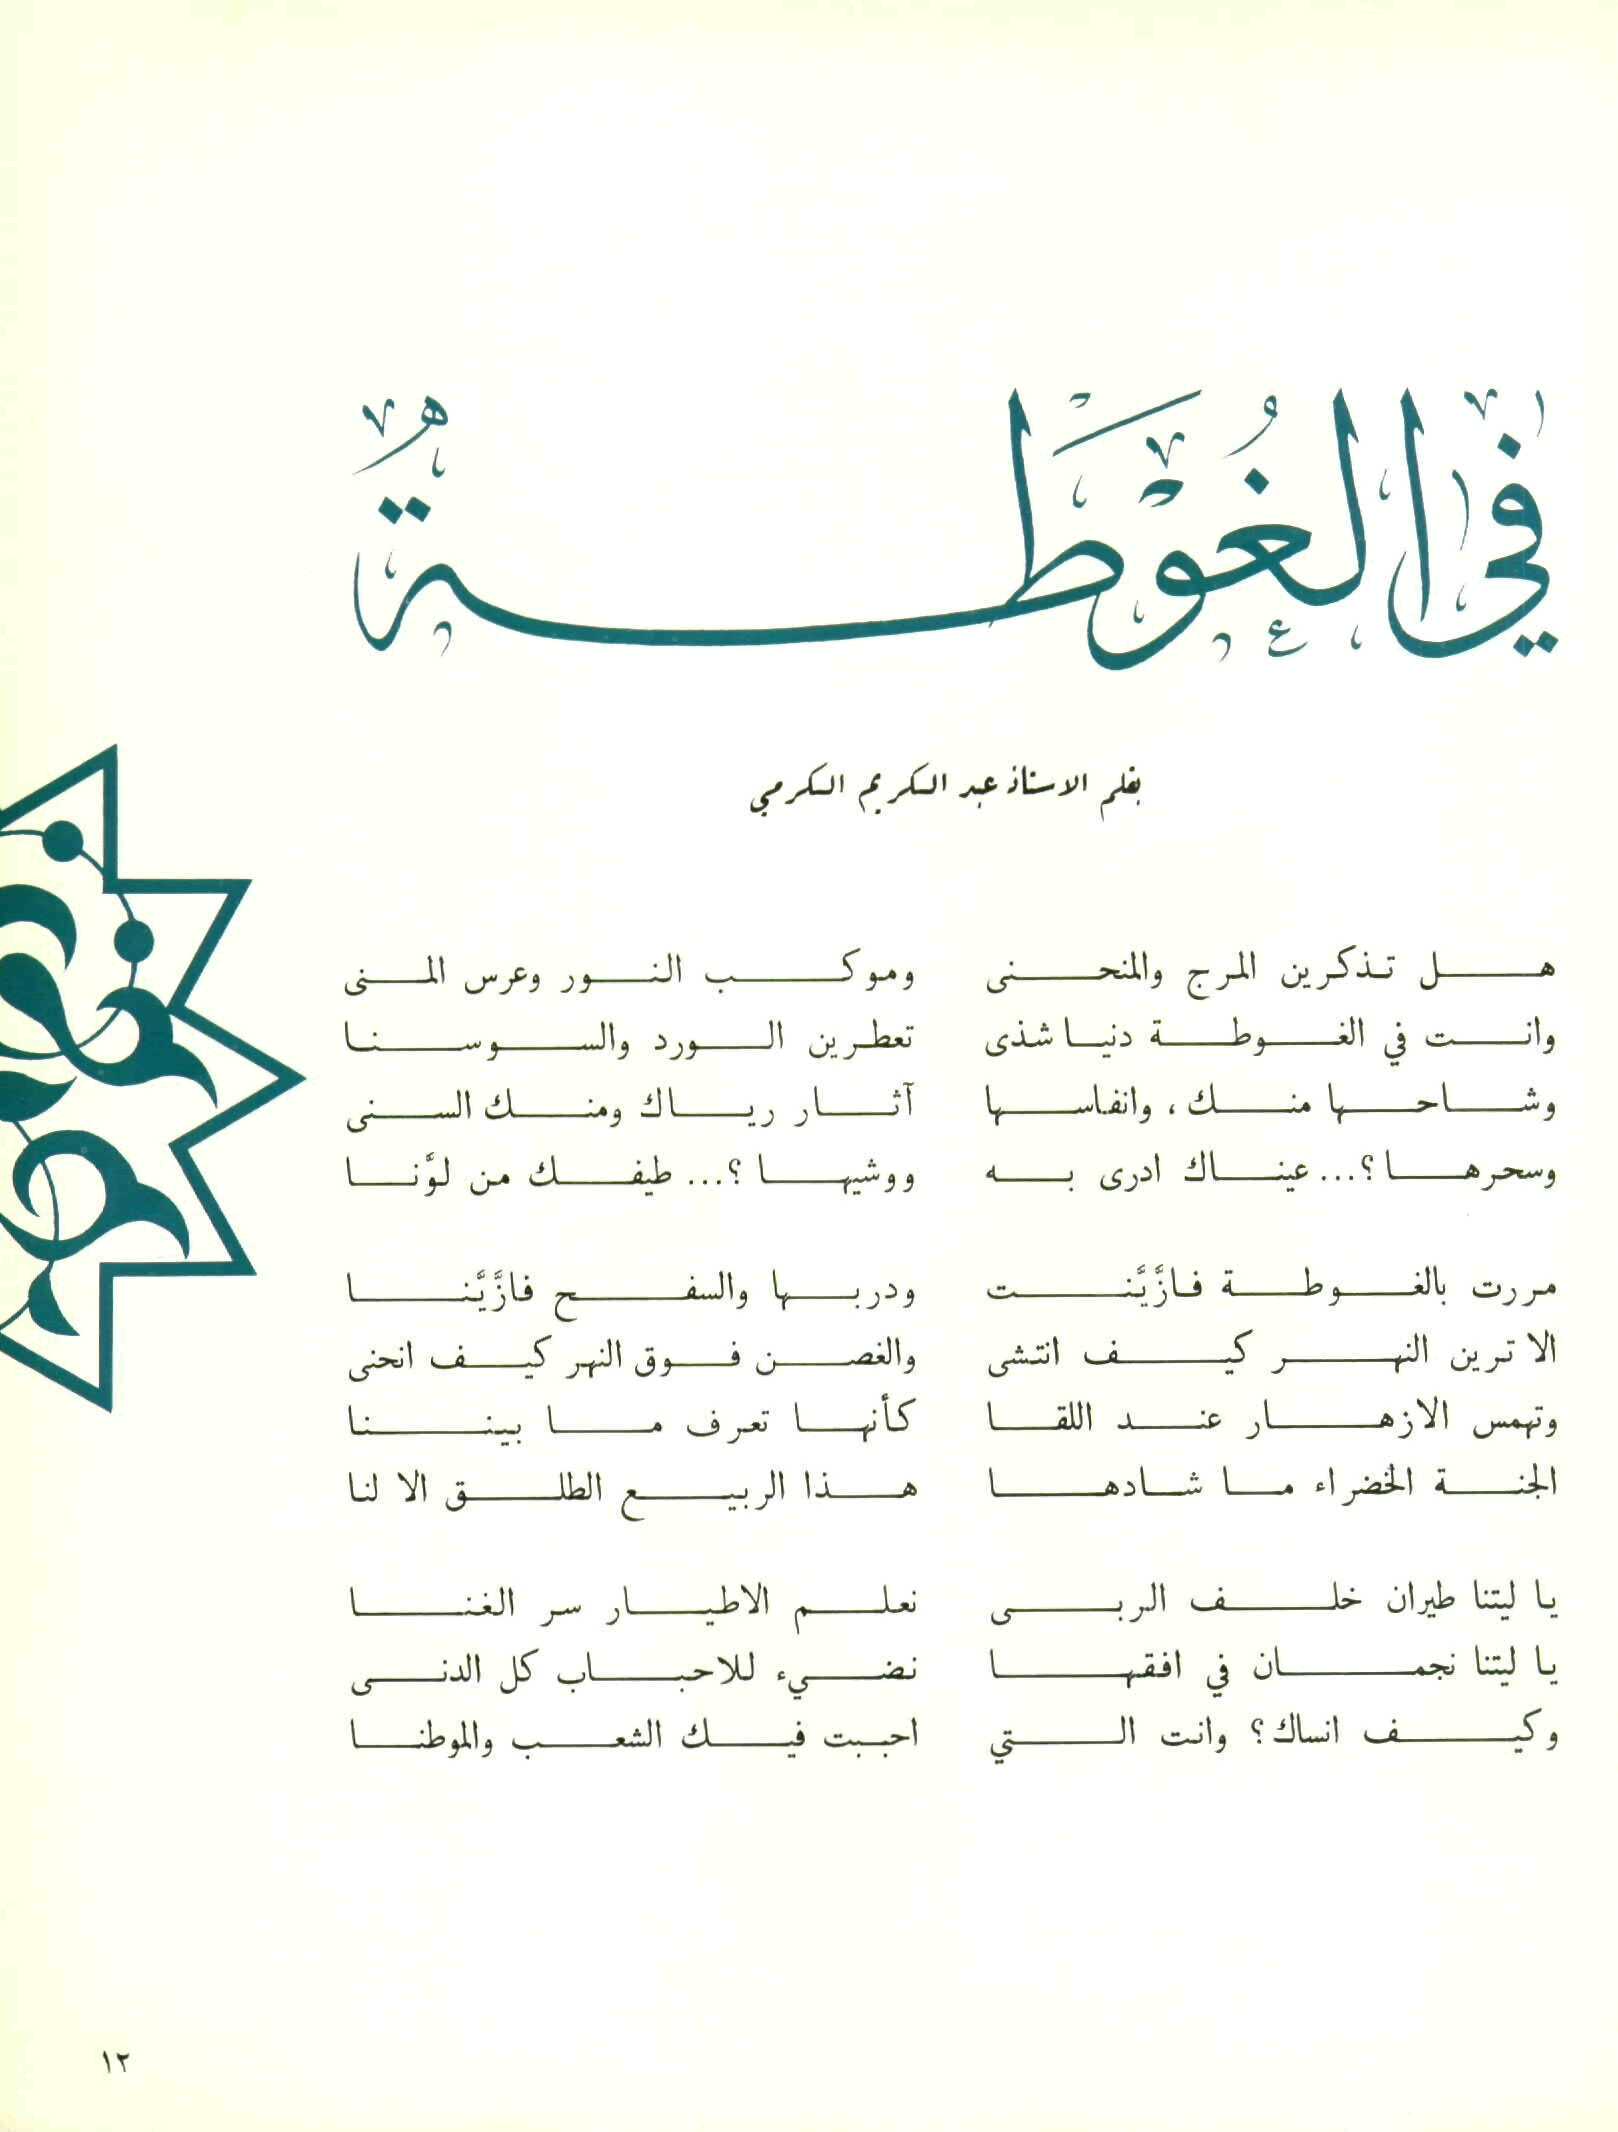 في الغُوطَة
بقلم الاستاذ عبد الكريم الكرمي
هل تذكرين المرج والمنحنى وموكب النور وعرس المنى
وانت في الغوطة دنيا شذى تعطرين الورد والسوسنا
وشاحها منك ، وانفاسها آثار رياك ومنك السنى
وسحرها ؟... عيناك ادرى به ووشيها ؟... طيفك من لوَّنا
مررت بالغوطة فازَّيَّنت ودربها والسفح فازَّيَّنا
الا ترين النهر كيف انتشى والغصن فوق النهر كيف انحنى
وتهمس الازهار عند اللقا كأنها تعرف ما بيننا
الجنة الخضراء ما شادها هذا الربيع الطلق الا لنا
يا ليتنا طيران خلف الربى نعلم الاطيار سر الغنا
يا ليتنا نجمان في افقها نضيء للاحباب كل الدنى
وكيف انساك ؟ وانت التي احببت فيك الشعب والموطنا
١٢